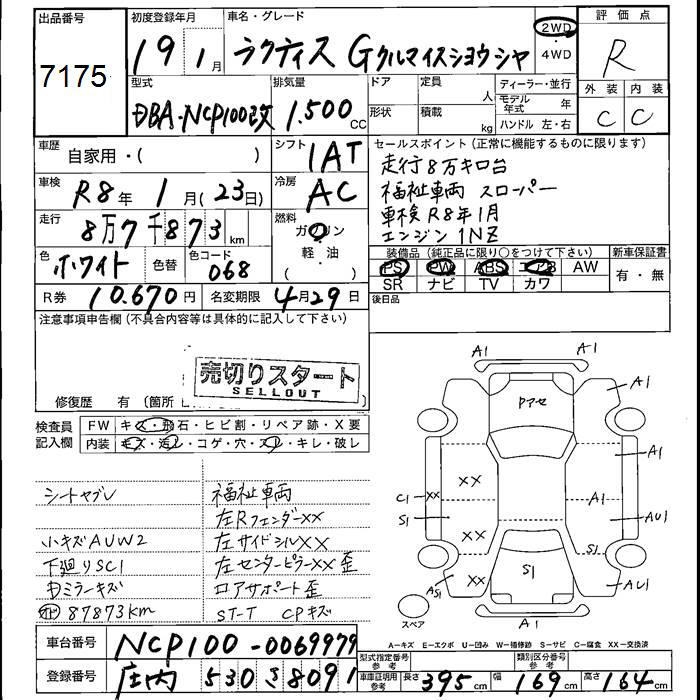 出品番号
7175
初度登録年月
19 1月
車名・グレード
ラクティス Gクルマイスシヨウシャ
2WD
・
4WD
評価点
R
外装 内装
C C
型式
DBA-NCP100改
排気量
1.500cc
ドア 定員 人
形状 積載 kg
ディーラー・並行
モデル年式 年
ハンドル 左・右
車歴
自家用・( )
シフト
1AT
車検
R8年 1月(23日)
冷房
AC
走行
8万7千873km
燃料
ガソリン
軽・油
( )
色
ホワイト
色替
色コード
068
R券 10.670円
名変期限 4月29日
セールスポイント(正常に機能するものに限ります)
走行8万キロ台
福祉車両 スローパー
車検R8年1月
エンジン 1NZ
装備品(純正品に限り○をつけて下さい)
PS PW ABS エアB AW
SR ナビ TV カワ
新車保証書
有・無
後日品
注意事項申告欄(不具合内容等は具体的に記入して下さい)
売切りスタート
SELLOUT
修復歴 有(箇所
検査員記入欄
FW キズ・飛石・ヒビ割・リペア跡・X要
内装 キズ・汚レ・コゲ・穴・スレ・キレ・破レ
シートヤブレ
小キズAUW2
下廻りSC1
ミラーキズ
87873km
福祉車両
左Rフェンダーxx
左サイドシルxx
左センターピラーxx歪
ロアサポート歪
ST-T CPキズ
A1 A1
A1
Pアセ
A1
xx
C1 xx
A1
S1
AU1
xx
S1
AS1
xx
AU1
A1
スペア
A-キズ E-エクボ U-凹み W-補修跡 S-サビ C-腐食 XX-交換済
車台番号 NCP100-0069979
登録番号 庄内 530 さ 8091
型式指定番号参考
類別区分番号参考
車庫証明用参考 長さ 395cm 幅 169cm 高さ 164cm